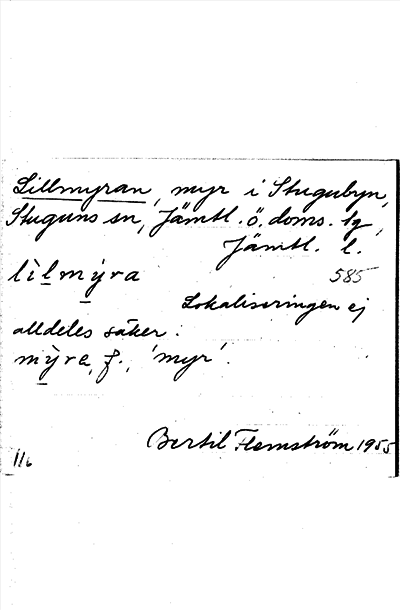 Lillmyran, myr i Stugubyn,
Stuguns sn, Jämtl. ö. doms. tg,
Jämtl. l.
lìlmỳra 585
Lokaliseringen ej
alldeles säker.
mỳra, f., 'myr'.
Bertil Flemström 1955